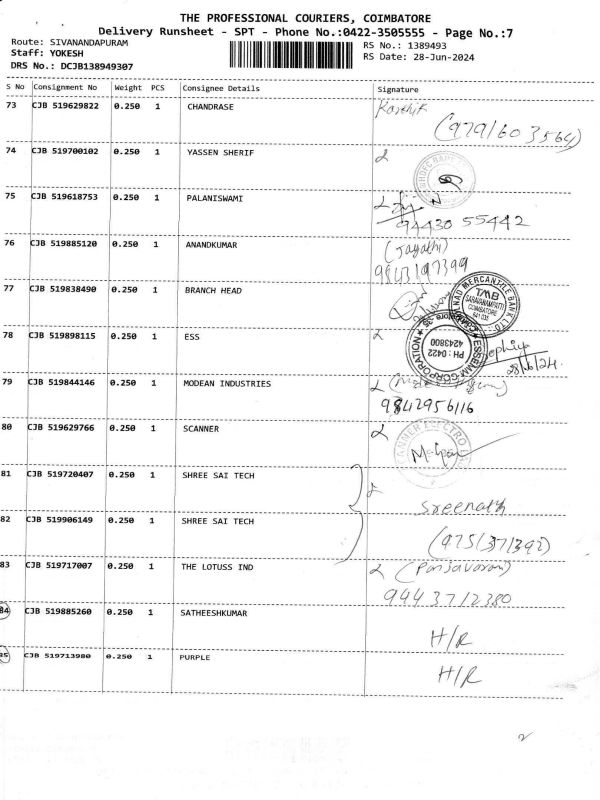 THE PROFESSIONAL COURIERS, COIMBATORE
Delivery Runsheet - SPT - Phone No.:0422-3505555 - Page No.:7
Route: SIVANANDAPURAM
RS No.: 1389493
Staff: YOKESH
RS Date: 28-Jun-2024
DRS No.: DCJB138949307
S No Consignment No Weight PCS Consignee Details Signature
73 CJB 519629822 0.250 1 CHANDRASE Karthik
(979160 3564)
74 CJB 519700102 0.250 1 YASSEN SHERIF
75 CJB 519618753 0.250 1 PALANISWAMI
94430 55442
76 CJB 519885120 0.250 1 ANANDKUMAR (Jayathi)
9843197399
77 CJB 519838490 0.250 1 BRANCH HEAD
MERCANTILE BANK LTD
TMB
SARAVANAMPATTI
COIMBATORE
641 035
78 CJB 519898115 0.250 1 ESS
ESEMM CORPORATION
PH : 0422
4243800
28/6/24.
79 CJB 519844146 0.250 1 MODEAN INDUSTRIES
9842956116
80 CJB 519629766 0.250 1 SCANNER
81 CJB 519720407 0.250 1 SHREE SAI TECH
Sreenath
82 CJB 519906149 0.250 1 SHREE SAI TECH
(9751371392)
83 CJB 519717007 0.250 1 THE LOTUSS IND
9443712380
84 CJB 519885260 0.250 1 SATHEESHKUMAR
H/R
85 CJB 519713980 0.250 1 PURPLE
H/R
2